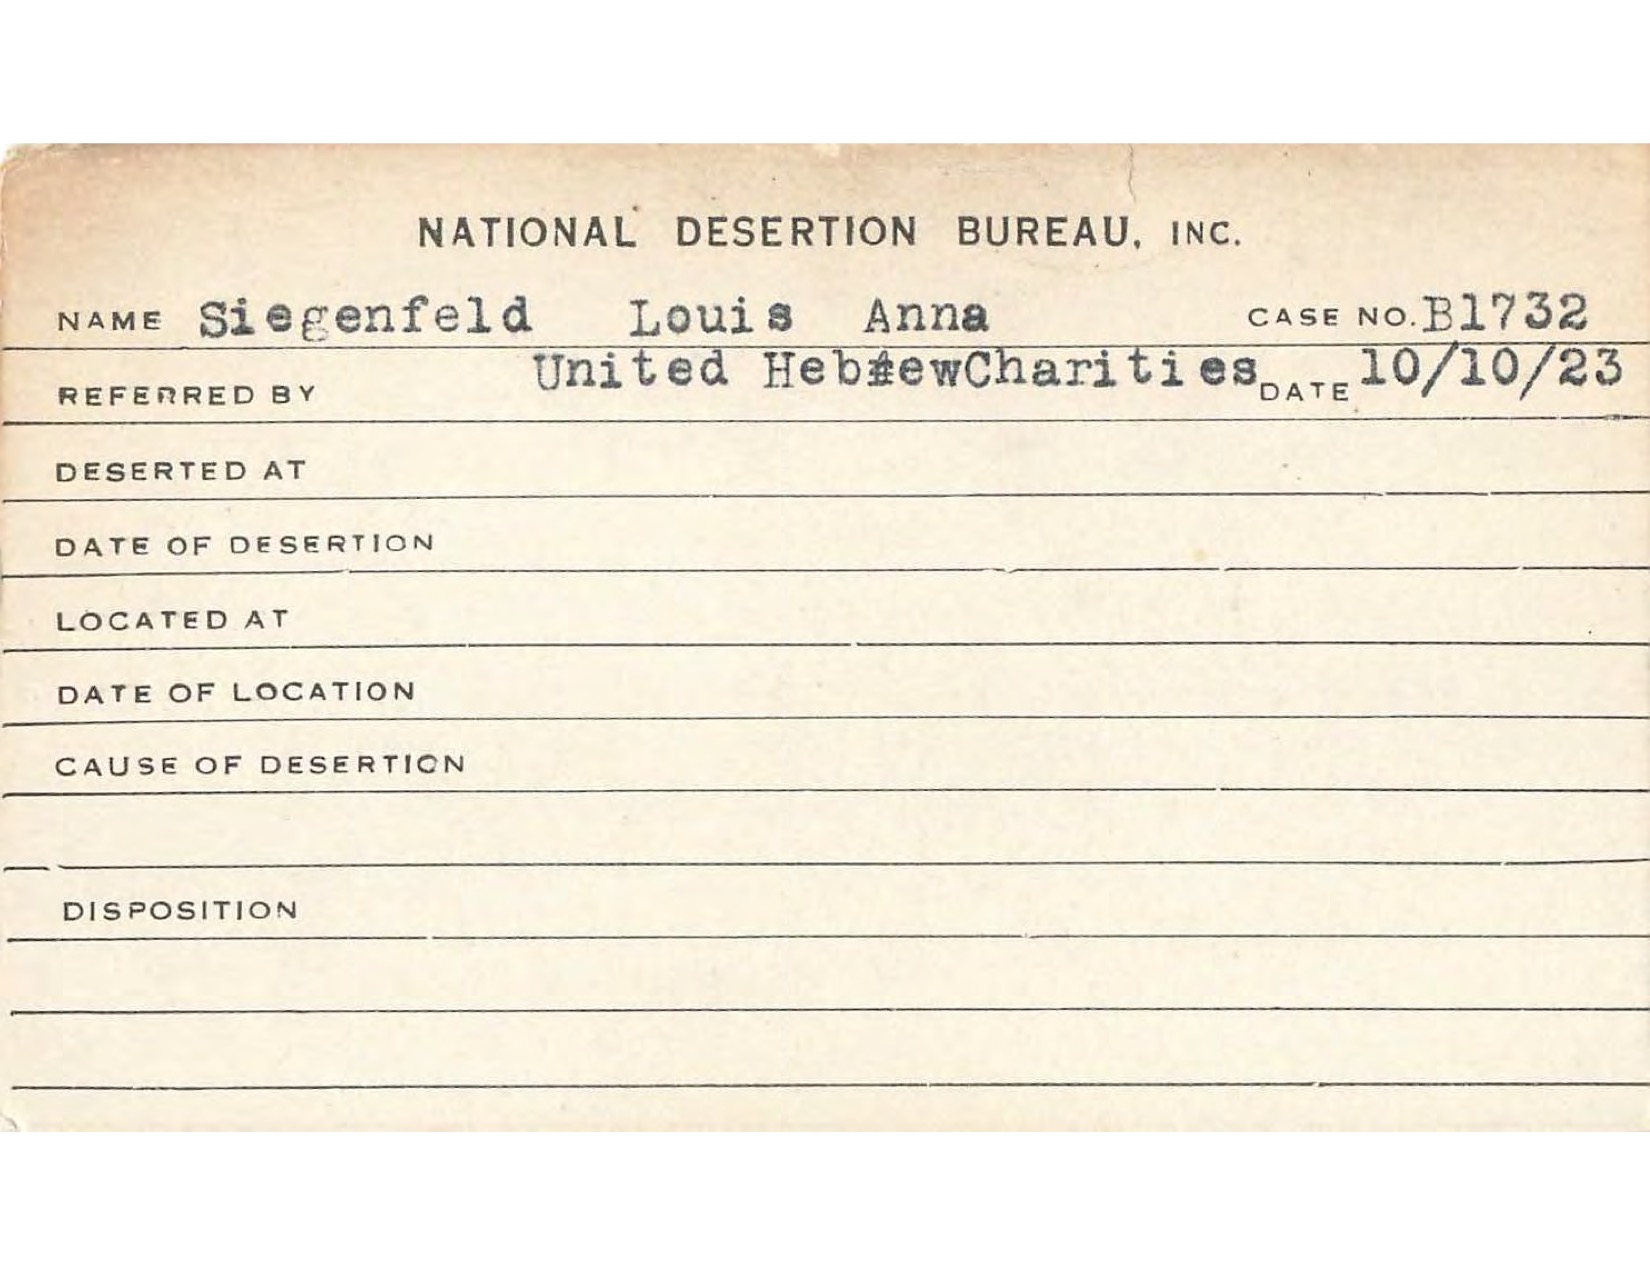 NATIONAL DESERTION BUREAU, INC.
NAME Siegenfeld Louis Anna CASE NO. B1732
REFERRED BY United HebrewCharities DATE 10/10/23
DESERTED AT
DATE OF DESERTION
LOCATED AT
DATE OF LOCATION
CAUSE OF DESERTION
DISPOSITION